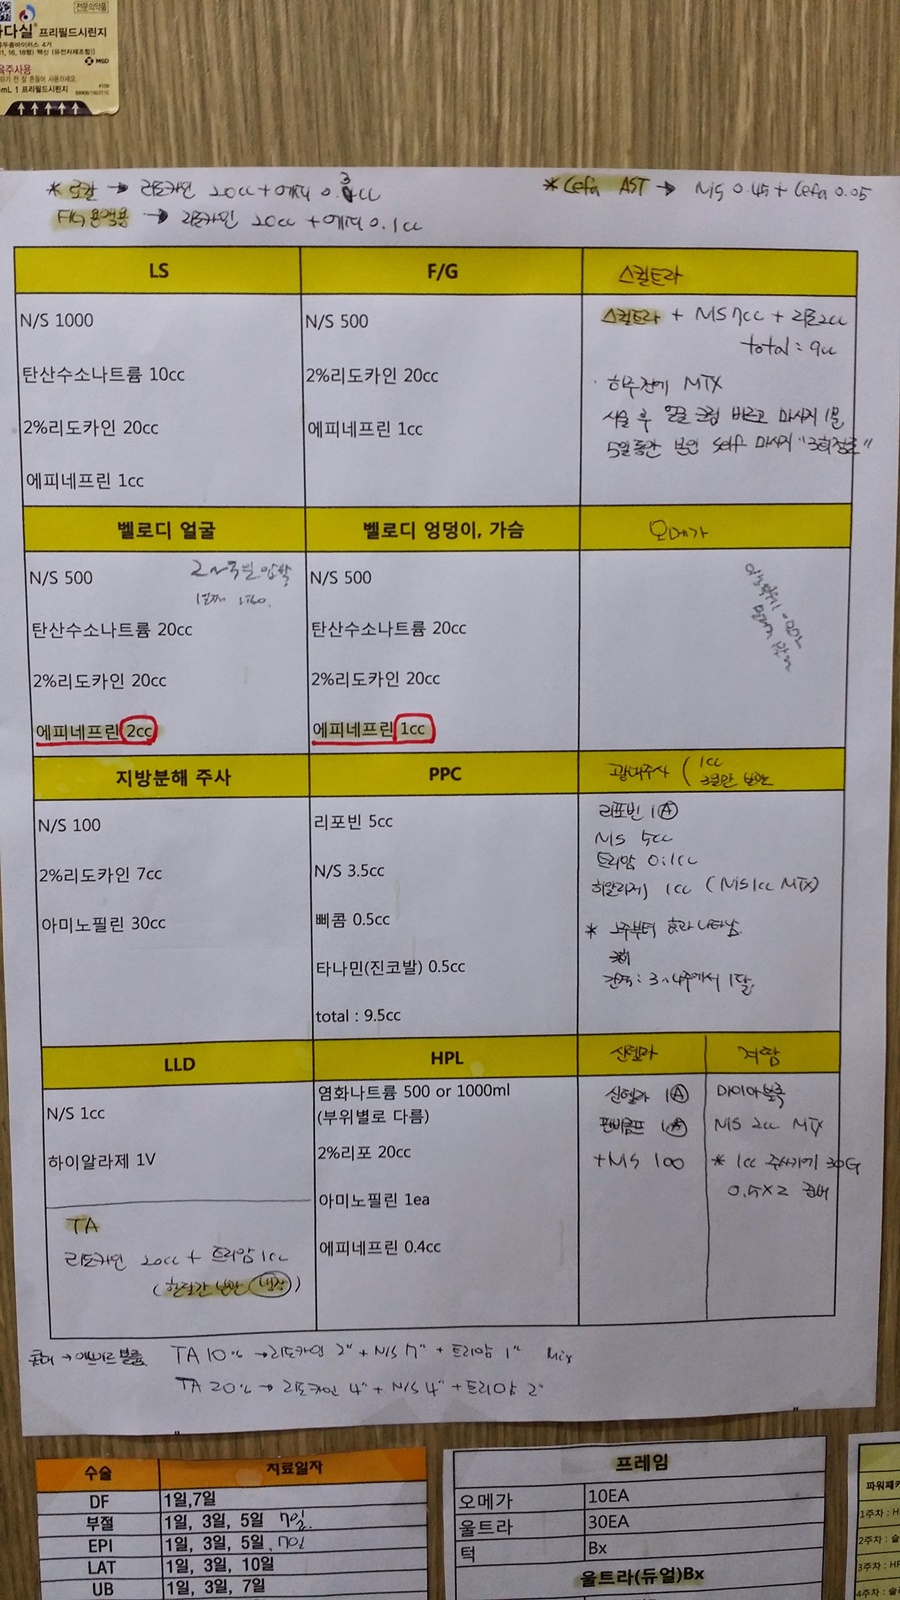 전문의약품
다실® 프리필드시린지
MSD
1 프리필드시린지
* 로칼 → 리도카인 20cc + 에피 0.3cc
F/G 용액용 → 리도카인 20cc + 에피 0.1cc
* Cefa AST → N/S 0.45 + Cefa 0.05
LS
N/S 1000
탄산수소나트륨 10cc
2%리도카인 20cc
에피네프린 1cc
F/G
N/S 500
2%리도카인 20cc
에피네프린 1cc
스컬트라
스컬트라 + N/S 7cc + 리도 2cc
total : 9cc
하루전에 MIX
시술 후 얼굴 크림 바르고 마사지 1분
5일동안 본인 self 마사지 "3회정도"
벨로디 얼굴
N/S 500
탄산수소나트륨 20cc
2%리도카인 20cc
에피네프린 2cc
벨로디 엉덩이, 가슴
N/S 500
탄산수소나트륨 20cc
2%리도카인 20cc
에피네프린 1cc
오메가
지방분해 주사
N/S 100
2%리도카인 7cc
아미노필린 30cc
PPC
리포빈 5cc
N/S 3.5cc
삐콤 0.5cc
타나민(진코발) 0.5cc
total : 9.5cc
광대주사 ( 1cc
리포빈 1Ⓐ
N/S 5cc
트리암 0.1cc
히알라제 1cc (N/S 1cc MIX)
* 2주부터 효과 나타남
3회
간격: 3~4주에서 1달
LLD
N/S 1cc
하이알라제 1V
TA
리도카인 20cc + 트리암 1cc
HPL
염화나트륨 500 or 1000ml
(부위별로 다름)
2%리포 20cc
아미노필린 1ea
에피네프린 0.4cc
신델라
신델라 1Ⓐ
1Ⓐ
+ N/S 100
N/S 2cc MIX
* 1cc 주사기에 30G
0.5×2
TA 10% → 리도카인 2" + N/S 7" + 트리암 1" Mix
TA 20% → 리도카인 4" + N/S 4" + 트리암 2"
수술 치료일자
DF 1일,7일
부절 1일, 3일, 5일 7일.
EPI 1일, 3일, 5일, 7일
LAT 1일, 3일, 10일
UB 1일, 3일, 7일
프레임
오메가 10EA
울트라 30EA
턱 Bx
울트라(듀얼)Bx
1주차 : H
2주차 : 슬
3주차 : HP
4주차 : 슬